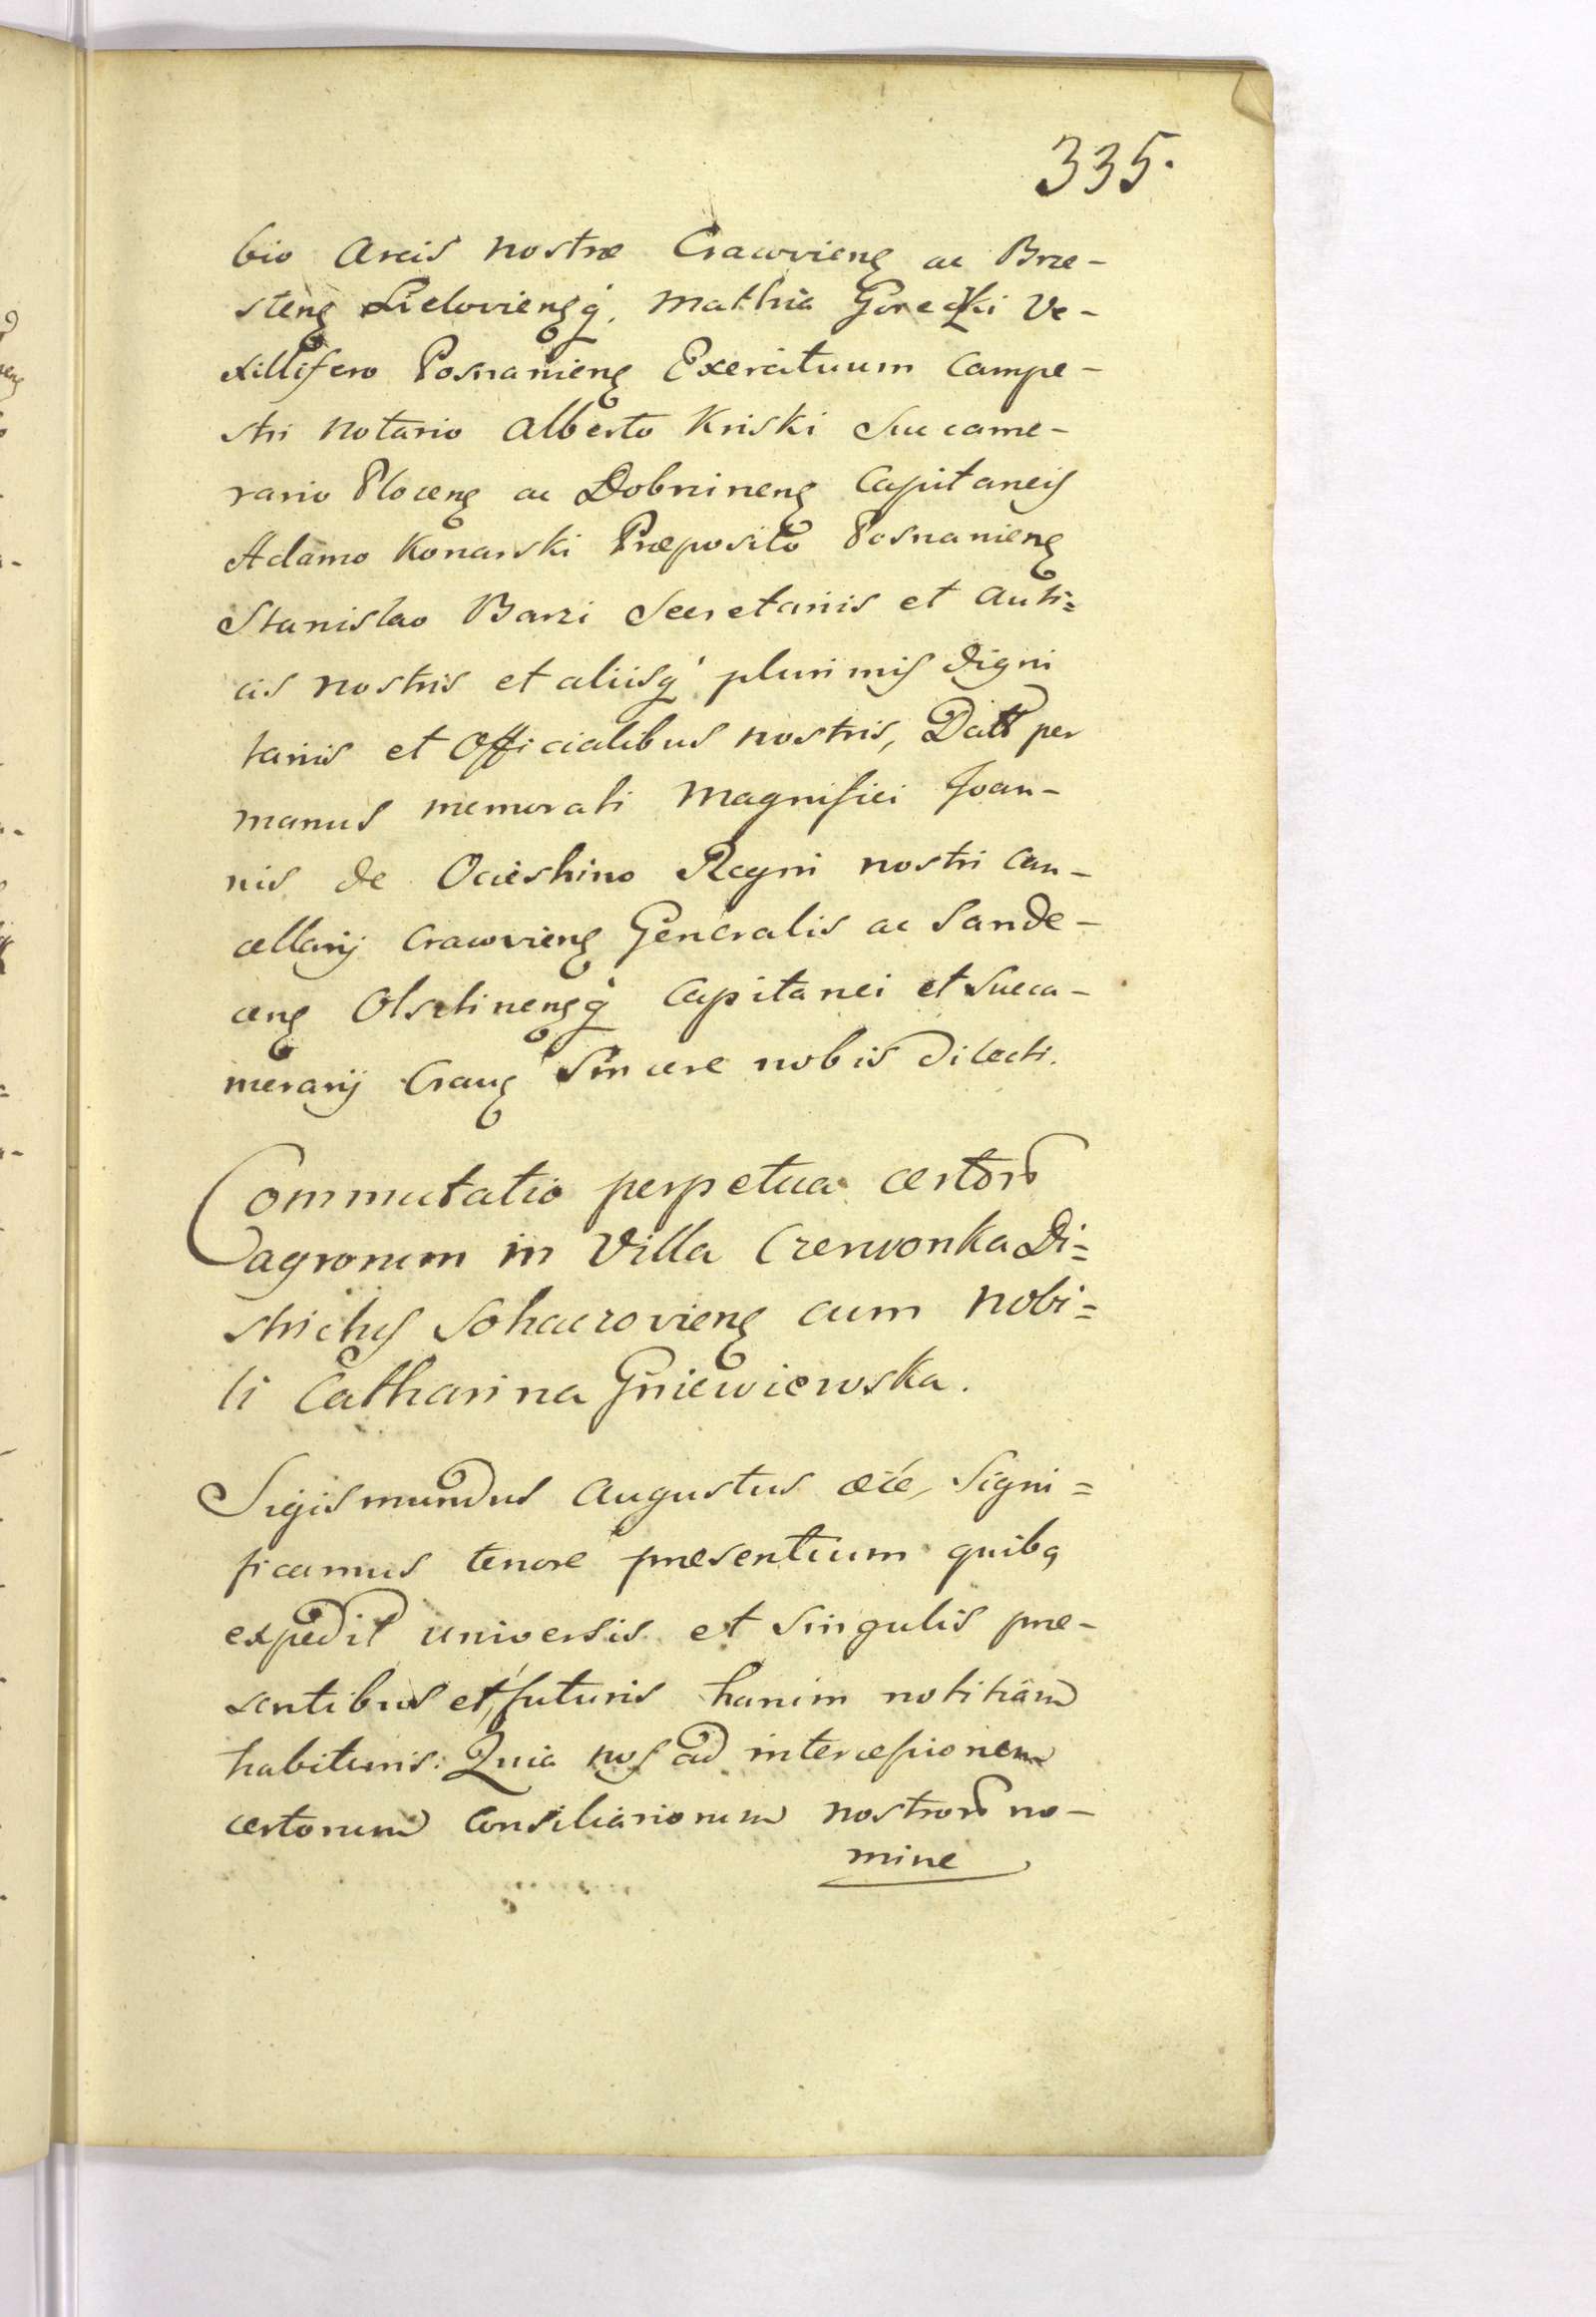 335.
bio Arcis nostræ Cracovieng ac Brze-
steng Lielovieng q, Mathia Gorecki Ve-
xillifero Posnanieng Exercituum Campe-
stri Notario Alberto Kriski Succame-
rario Ploceng ac Dobrineng Capitaneis
Adamo Konarski Præposito Posnanieng
Stanislao Barzi Secretariis et Auli=
cis nostris et aliisq plurimis Digni
tariis et Officialibus nostris, Datt per
manus memorati Magnifici Joan-
nis de Ocieshino Regni nostri Can-
cellarij Cracovieng Generalis ac Sande-
ceng Olsztinengq Capitanei et Succa-
merarij Cracg Sincere nobis dilecti.
Commutatio perpetua certoru
agrorum in Villa Czerwonka Di=
strictus Sohaczovieng cum Nobi=
li Catharina Gniewiewska.
Sigismundus Augustus etc, Signi=
ficamus tenore præsentium quibq
expedit universis et singulis præ-
sentibus et futuris harum notitiam
habituris: Quia nos ad intercessionem
certorum Consiliariorum nostroru no-
mine